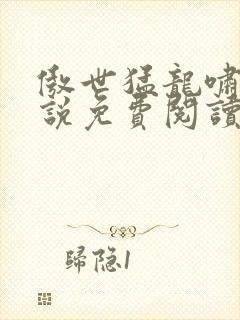 傲世猛龍嘯
說免費閱讀
歸隐1